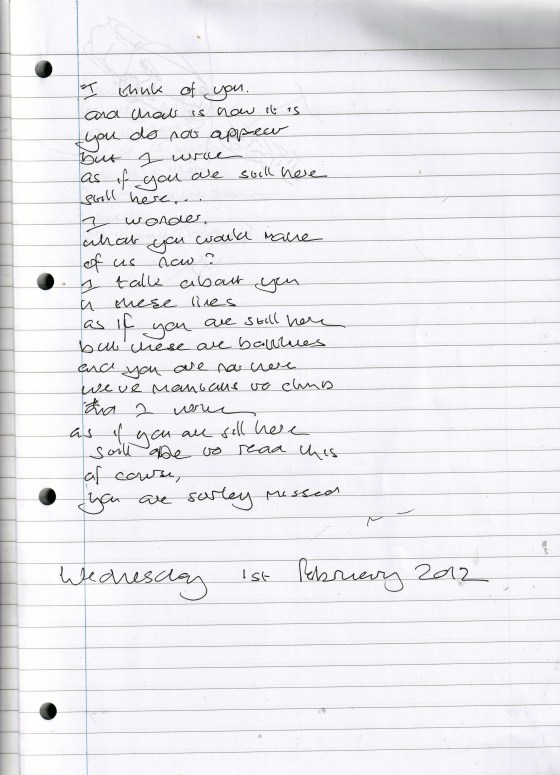 I think of you.
and that is how it is
you do not appear
but I write
as if you are still here
still here...
I wonder.
what you would make
of us now?
I talk about you
in these lines
as if you are still here
but these are battles
and you are not here
we've mountains to climb
and I write
as if you are sill here
still able to read this
of course,
you are sorley missed
Wednesday 1st February 2012